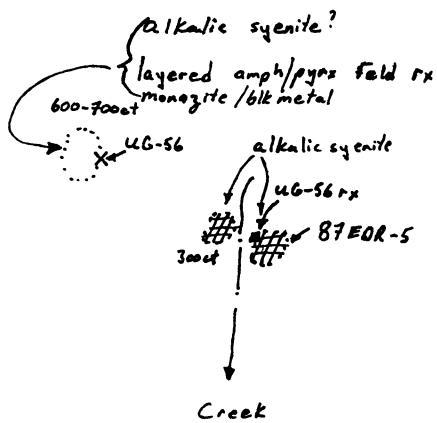 alkalic syenite?
layered amph/pyrx feld rx
monozite/blk metal
600-700ct
UG-56
alkalic syenite
UG-56 rx
87EDR-5
300ct
Creek